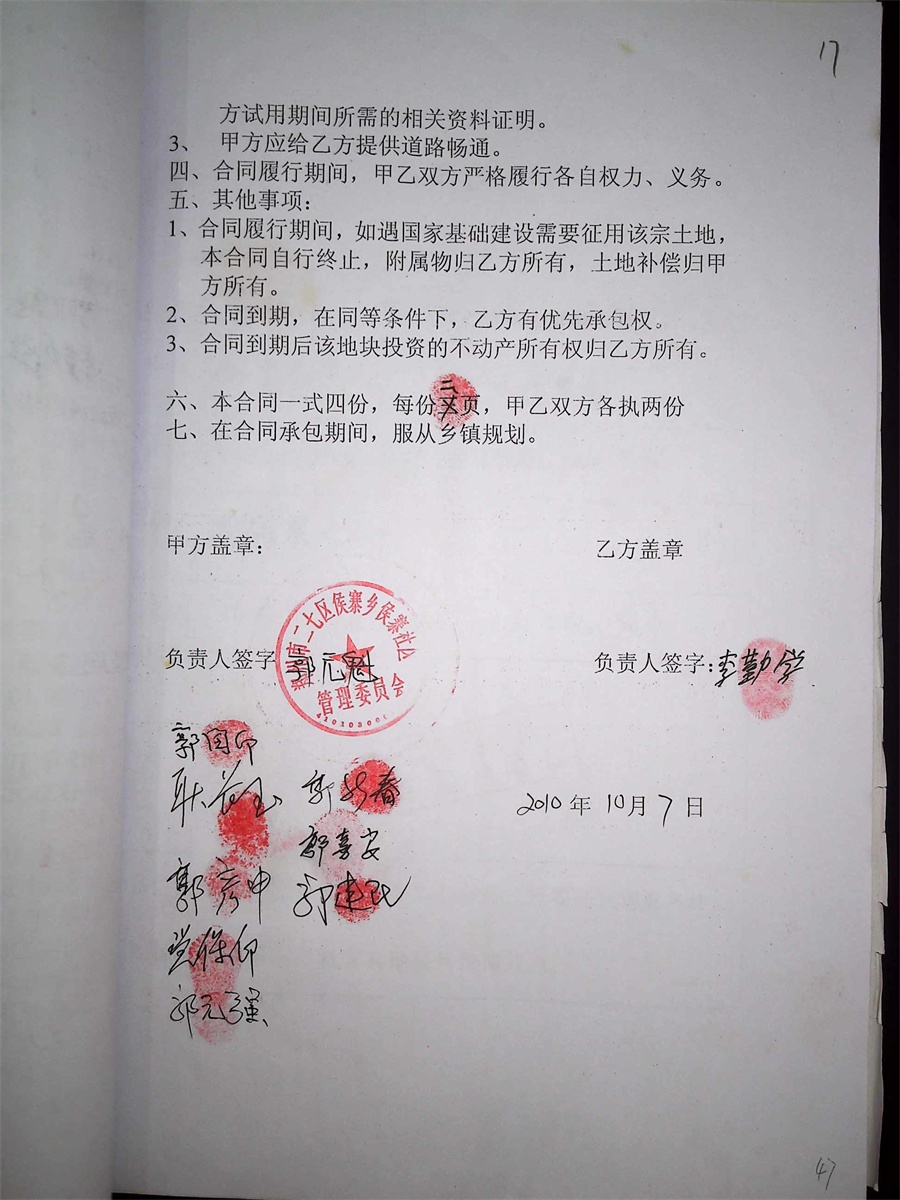 17
方试用期间所需的相关资料证明。
3、 甲方应给乙方提供道路畅通。
四、合同履行期间，甲乙双方严格履行各自权力、义务。
五、其他事项：
1、合同履行期间，如遇国家基础建设需要征用该宗土地，
本合同自行终止，附属物归乙方所有，土地补偿归甲
方所有。
2、合同到期，在同等条件下，乙方有优先承包权。
3、合同到期后该地块投资的不动产所有权归乙方所有。
六、本合同一式四份，每份二页，甲乙双方各执两份
七、在合同承包期间，服从乡镇规划。
甲方盖章： 乙方盖章
市二七区侯寨乡侯寨社区
管理委员会
负责人签字 郭元魁 负责人签字：李勤学
郭国印
郭新春
2010年10月7日
郭喜安
郭彦中 郭建民
郭元强
47